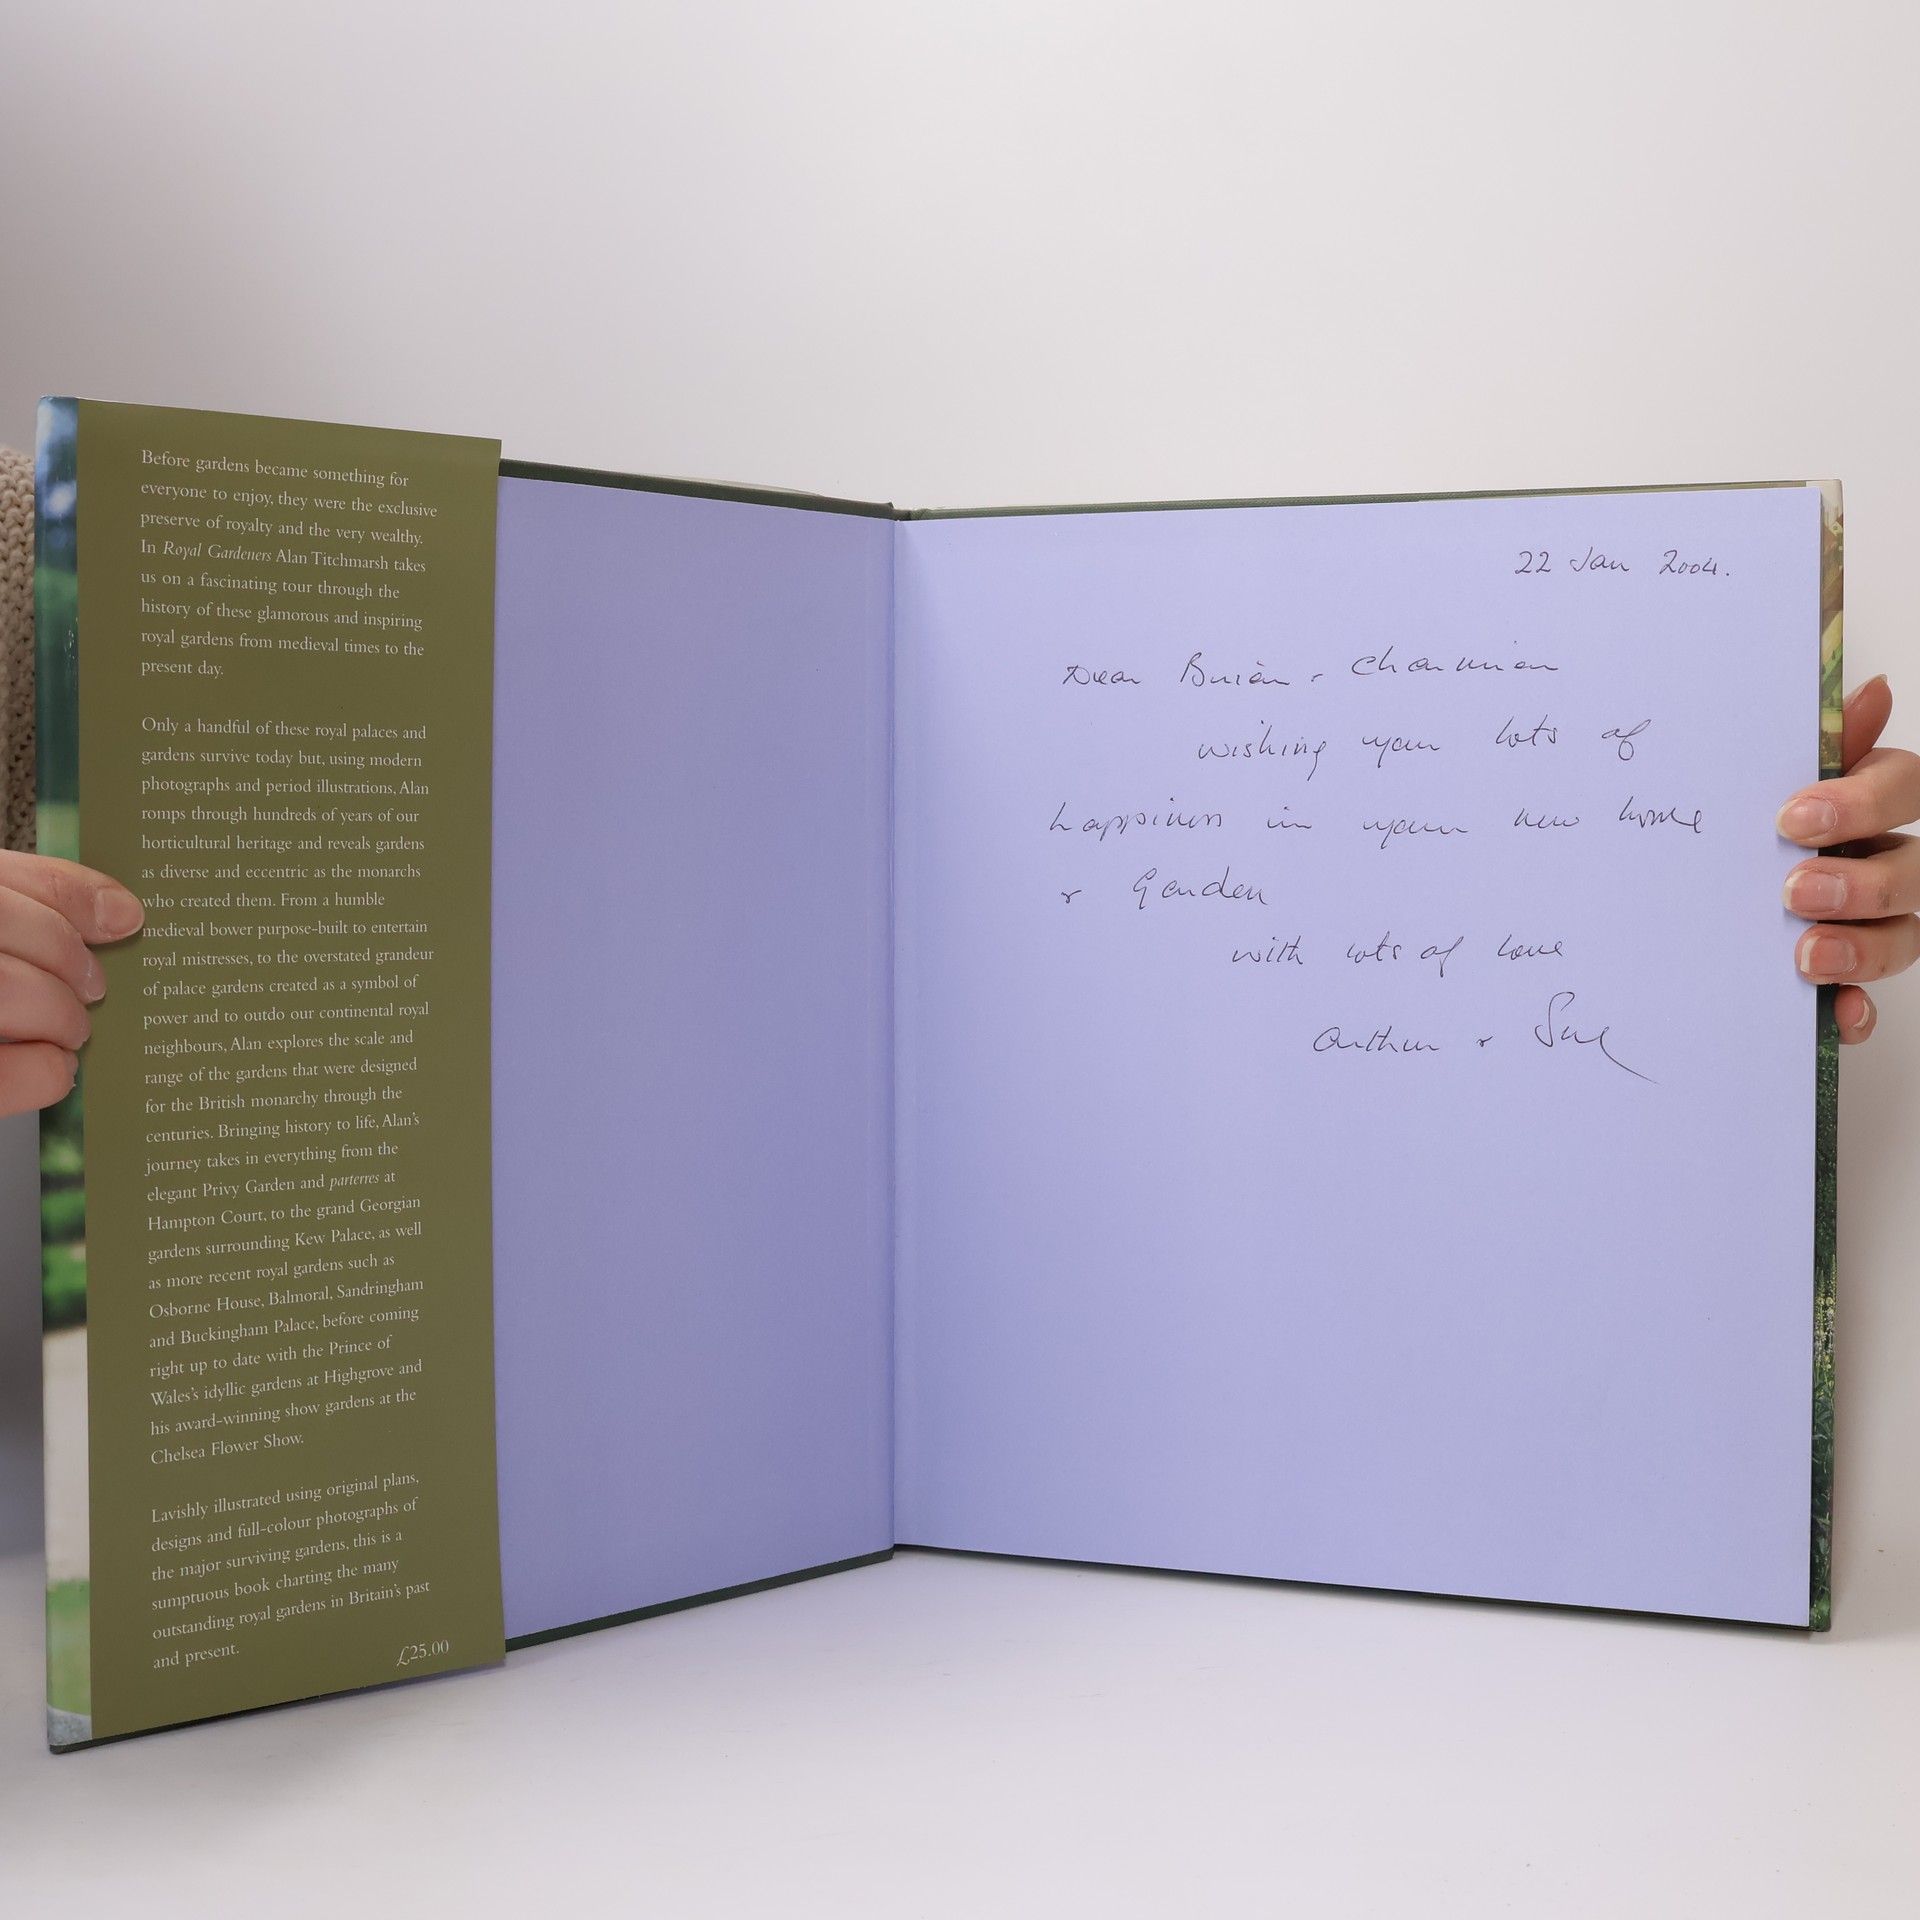 Before gardens became something for
everyone to enjoy, they were the exclusive
preserve of royalty and the very wealthy.
In Royal Gardeners Alan Titchmarsh takes
us on a fascinating tour through the
history of these glamorous and inspiring
royal gardens from medieval times to the
present day.
Only a handful of these royal palaces and
gardens survive today but, using modern
photographs and period illustrations, Alan
romps through hundreds of years of our
horticultural heritage and reveals gardens
as diverse and eccentric as the monarchs
who created them. From a humble
medieval bower purpose-built to entertain
royal mistresses, to the overstated grandeur
of palace gardens created as a symbol of
power and to outdo our continental royal
neighbours, Alan explores the scale and
range of the gardens that were designed
for the British monarchy through the
centuries. Bringing history to life, Alan's
journey takes in everything from the
elegant Privy Garden and parterres at
Hampton Court, to the grand Georgian
gardens surrounding Kew Palace, as well
as more recent royal gardens such as
Osborne House, Balmoral, Sandringham
and Buckingham Palace, before coming
right up to date with the Prince of
Wales's idyllic gardens at Highgrove and
his award-winning show gardens at the
Chelsea Flower Show.
Lavishly illustrated using original plans,
designs and full-colour photographs of
the major surviving gardens, this is a
sumptuous book charting the many
outstanding royal gardens in Britain's past
and present.
£25.00
22 Jan 2004.
Dear Brian & Charmian
wishing you lots of
happiness in your new home
& Garden
with lots of love
Arthur & Sue